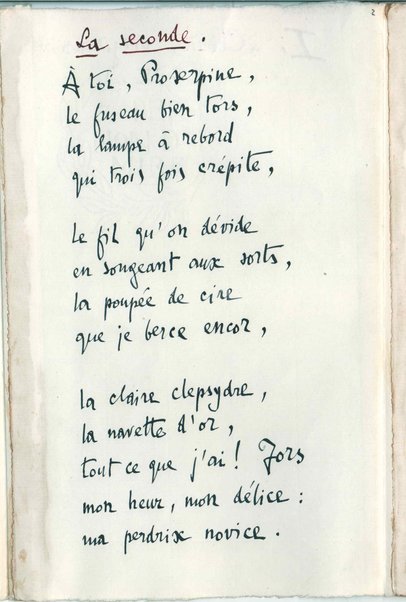 2
La seconde.
À toi, Proserpine,
le fuseau bien tors,
la lampe à rebord
qui trois fois crépite,
le fil qu'on dévide
en songeant aux sorts,
la poupée de cire
que je berce encor,
la claire clepsydre,
la navette d'or,
tout ce que j'ai! Fors
mon heur, mon délice :
ma perdrix novice.